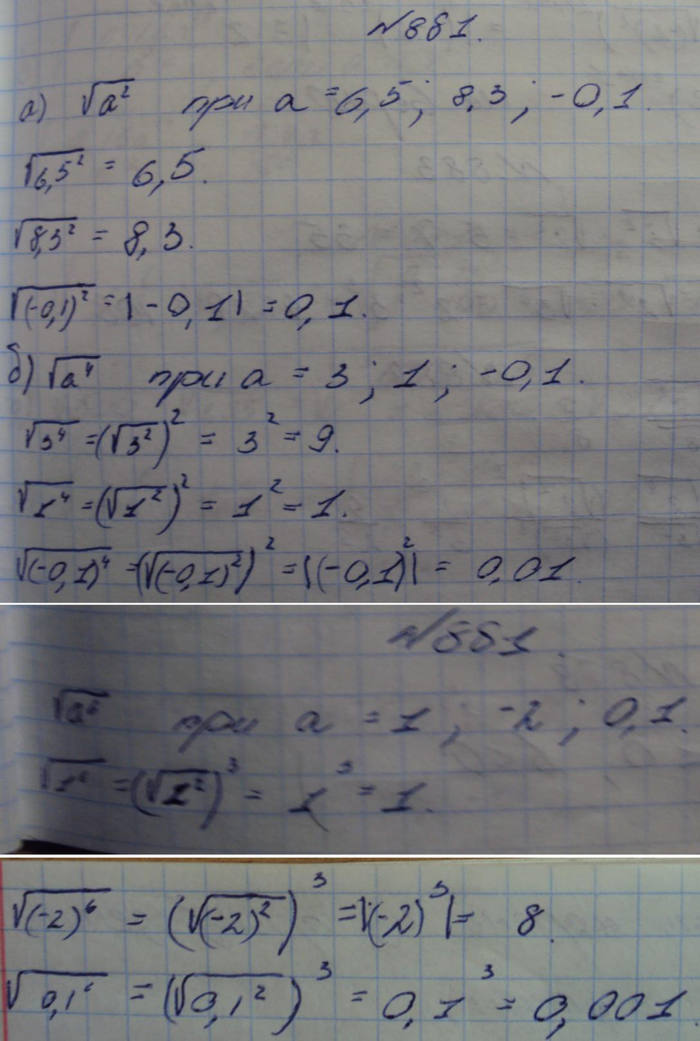 №881.
а) √a² при a = 6,5; 8,3; -0,1.
√6,5² = 6,5.
√8,3² = 8,3.
√(-0,1)² = |-0,1| = 0,1.
б) √a⁴ при a = 3; 1; -0,1.
√3⁴ = (√3²)² = 3² = 9.
√1⁴ = (√1²)² = 1² = 1.
√(-0,1)⁴ = (√(-0,1)²)² = |(-0,1)²| = 0,01.
№881.
√a⁶ при a = 1; -2; 0,1.
√1⁶ = (√1²)³ = 1³ = 1.
√(-2)⁶ = (√(-2)²)³ = |(-2)³| = 8.
√0,1⁶ = (√0,1²)³ = 0,1³ = 0,001.